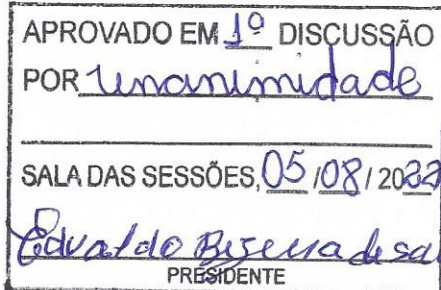 APROVADO EM 1º DISCUSSÃO
POR unanimidade
SALA DAS SESSÕES, 05 / 08 / 2022
Edvaldo Bezerra de
PRESIDENTE